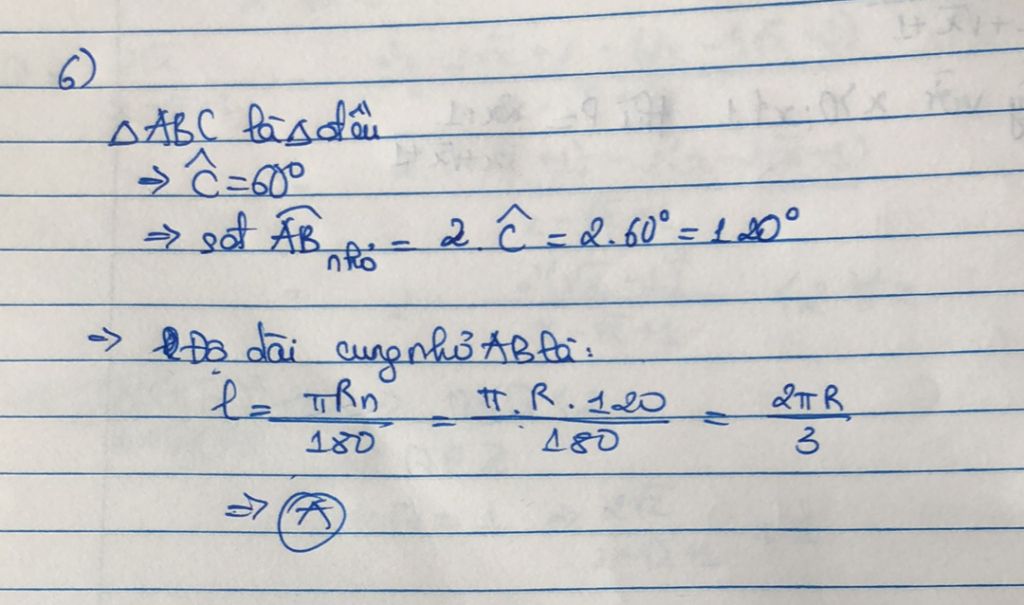 6)
△ABC là △ đều
⇒ Ĉ = 60°
⇒ sđ AB nhỏ = 2. Ĉ = 2.60° = 120°
⇒ Độ dài cung nhỏ AB là:
l = πRn/180 = π.R.120/180 = 2πR/3
⇒ A